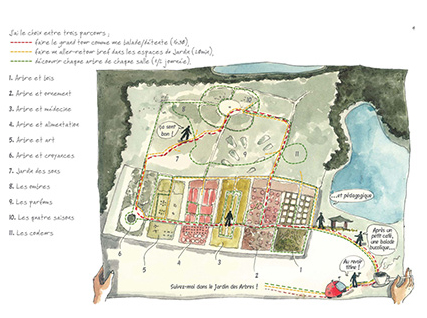 J'ai le choix entre trois parcours :
faire le grand tour comme une balade/détente (
faire un aller-retour bref dans les espaces de Jardin (20min),
découvrir chaque arbre de chaque salle (1/2 journée).
1. Arbre et bois
2. Arbre et ornement
3. Arbre et médecine
4. Arbre et alimentation
5. Arbre et art
6. Arbre et croyances
7. Jardin des sons
8. Les ombres
9. Les parfums
10. Les quatre saisons
11. Les couleurs
ça sent
bon !
10
7
11
...et pédagogique
Après un
petit café,
une balade
bucolique...
Au revoir
titine !
6
5
4
3
2
1
Suivez-moi dans le Jardin des Arbres !